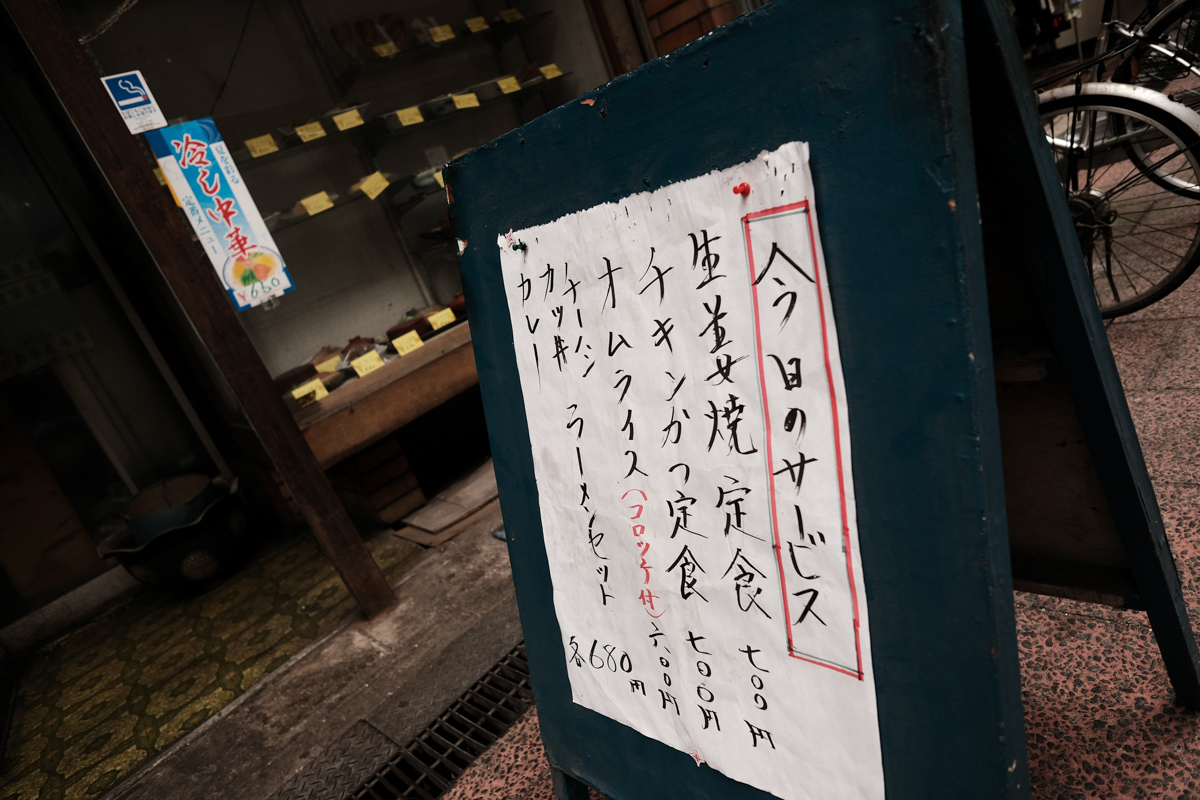 今日のサービス
生姜焼定食 七〇〇円
チキンかつ定食 七〇〇円
オムライス(コロッケ付) 六〇〇円
チャーハン
カツ丼 ラーメンセット 各680円
カレー
夏を彩る
冷し中華
定番メニュー
¥650